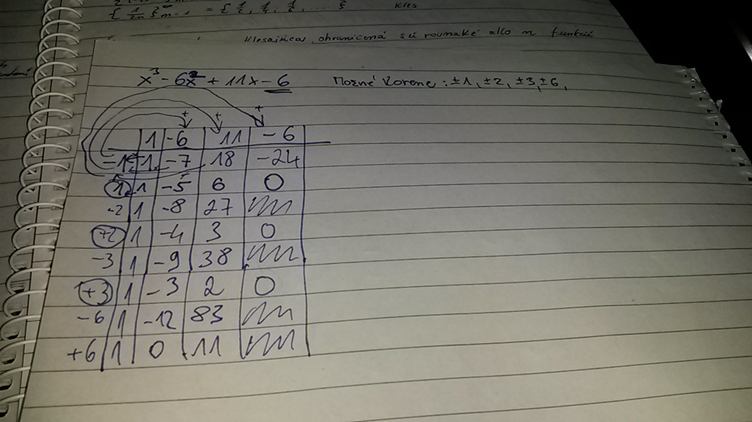 = { 1/2, 1/4, 1/6, ... }
kles
klesajúca, ohraničená sú rovnaké ako n funkcií
x³ - 6x² + 11x - 6 Možné korene: ±1, ±2, ±3, ±6,
+ + +
1 -6 11 -6
-1 1 -7 18 -24
1 1 -5 6 0
-2 1 -8 27
+2 1 -4 3 0
-3 1 -9 38
+3 1 -3 2 0
-6 1 -12 83
+6 1 0 11